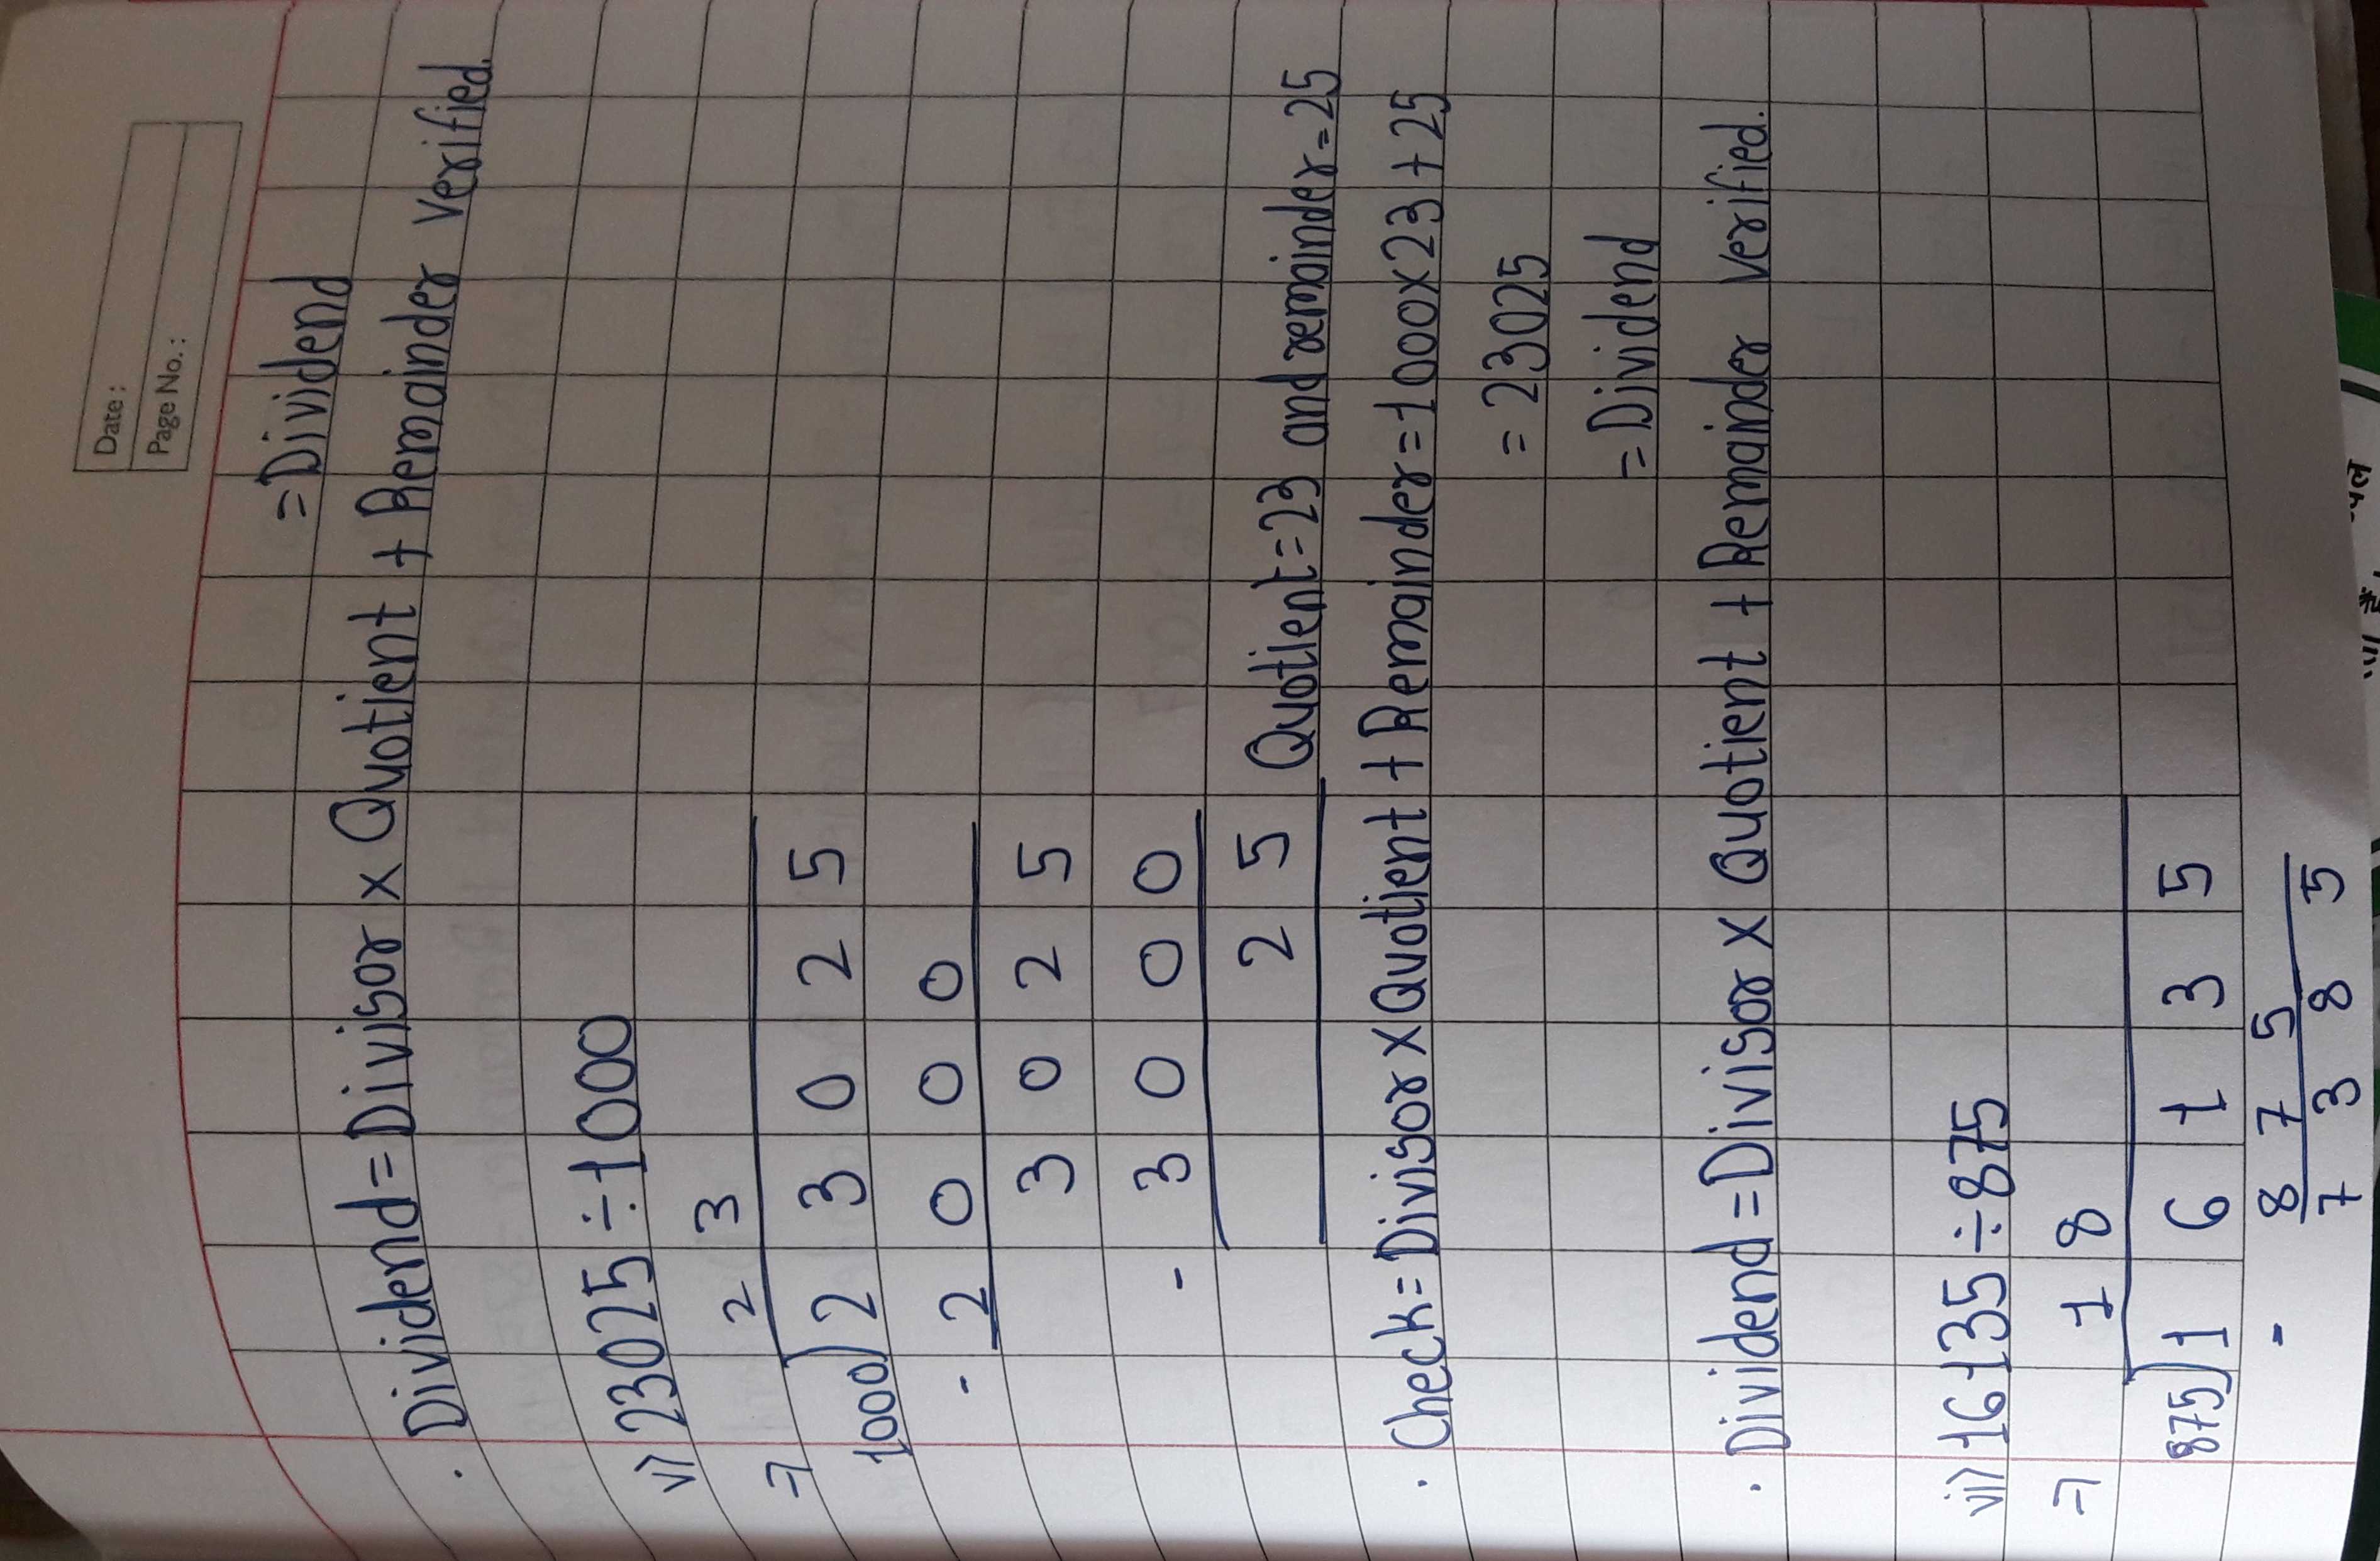 Date :
Page No. :
= Dividend
. Dividend = Divisor x Quotient + Remainder verified.
vi) 23025 ÷ 1000
2 3
⇒ 1000) 2 3 0 2 5
- 2 0 0 0
3 0 2 5
- 3 0 0 0
2 5 Quotient = 23 and remainder = 25
. Check = Divisor x Quotient + Remainder = 1000 x 23 + 25
= 23025
= Dividend
. Dividend = Divisor x Quotient + Remainder verified.
vii) 16135 ÷ 875
⇒ 1 8
875) 1 6 1 3 5
- 8 7 5
7 3 8 5